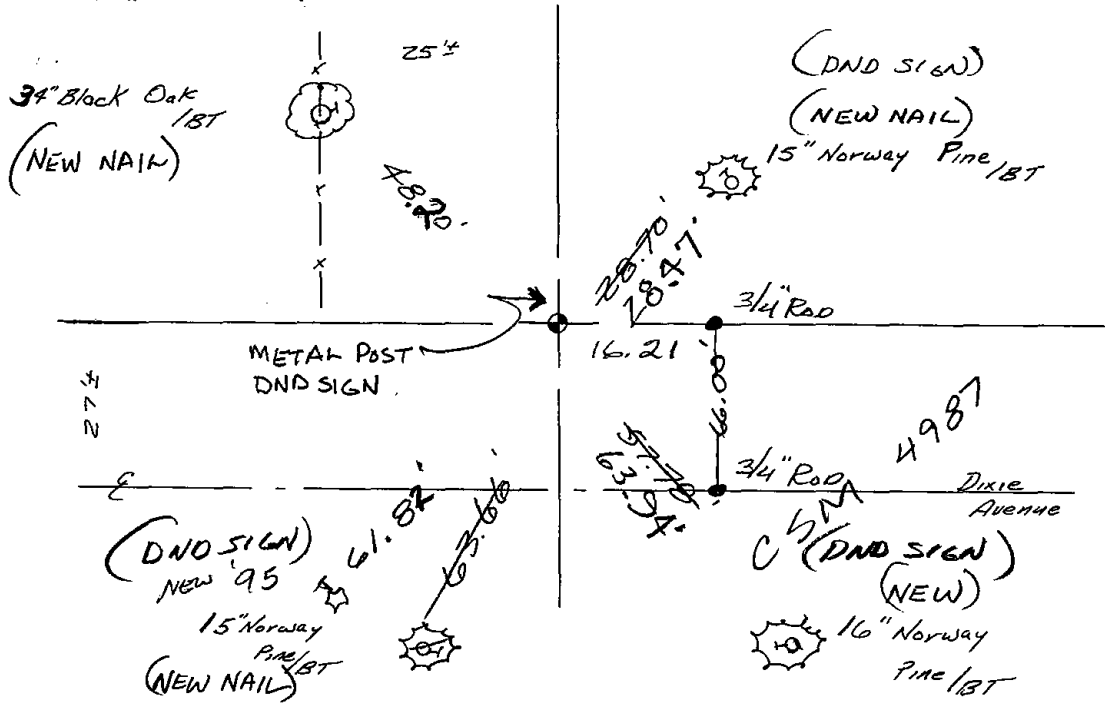 25'±
34" Black Oak
/BT
(NEW NAIL)
48.20'
(DND SIGN)
(NEW NAIL)
15" Norway Pine/BT
28.70'
28.47'
3/4" ROD
METAL POST
DND SIGN
16.21'
27'±
57.78'
63.94'
3/4" ROD
CSM 4987
Dixie
Avenue
(DND SIGN)
NEW '95
61.82'
63.66'
15" Norway
Pine/BT
(NEW NAIL)
(DND SIGN)
(NEW)
16" Norway
Pine/BT